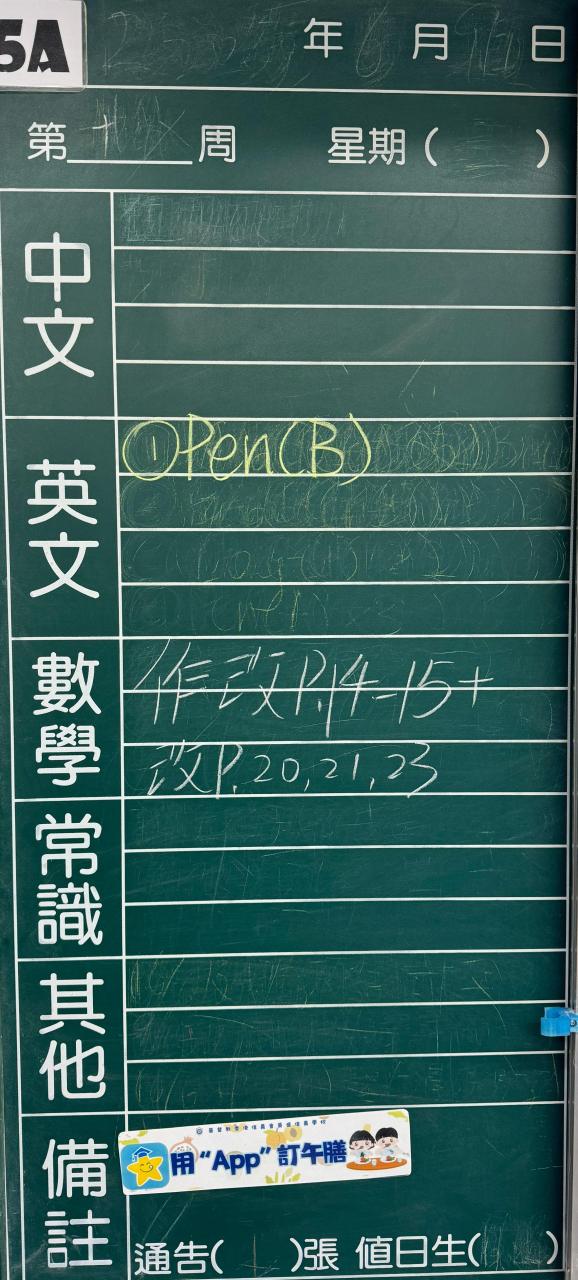 5A
年 6 月 日
第 周 星期( )
中文
英文
①Pen(B)
數學
作改P.14-15+
改P.20,21,23
常識
其他
備註
用“App”訂午膳
通告( )張 值日生( )